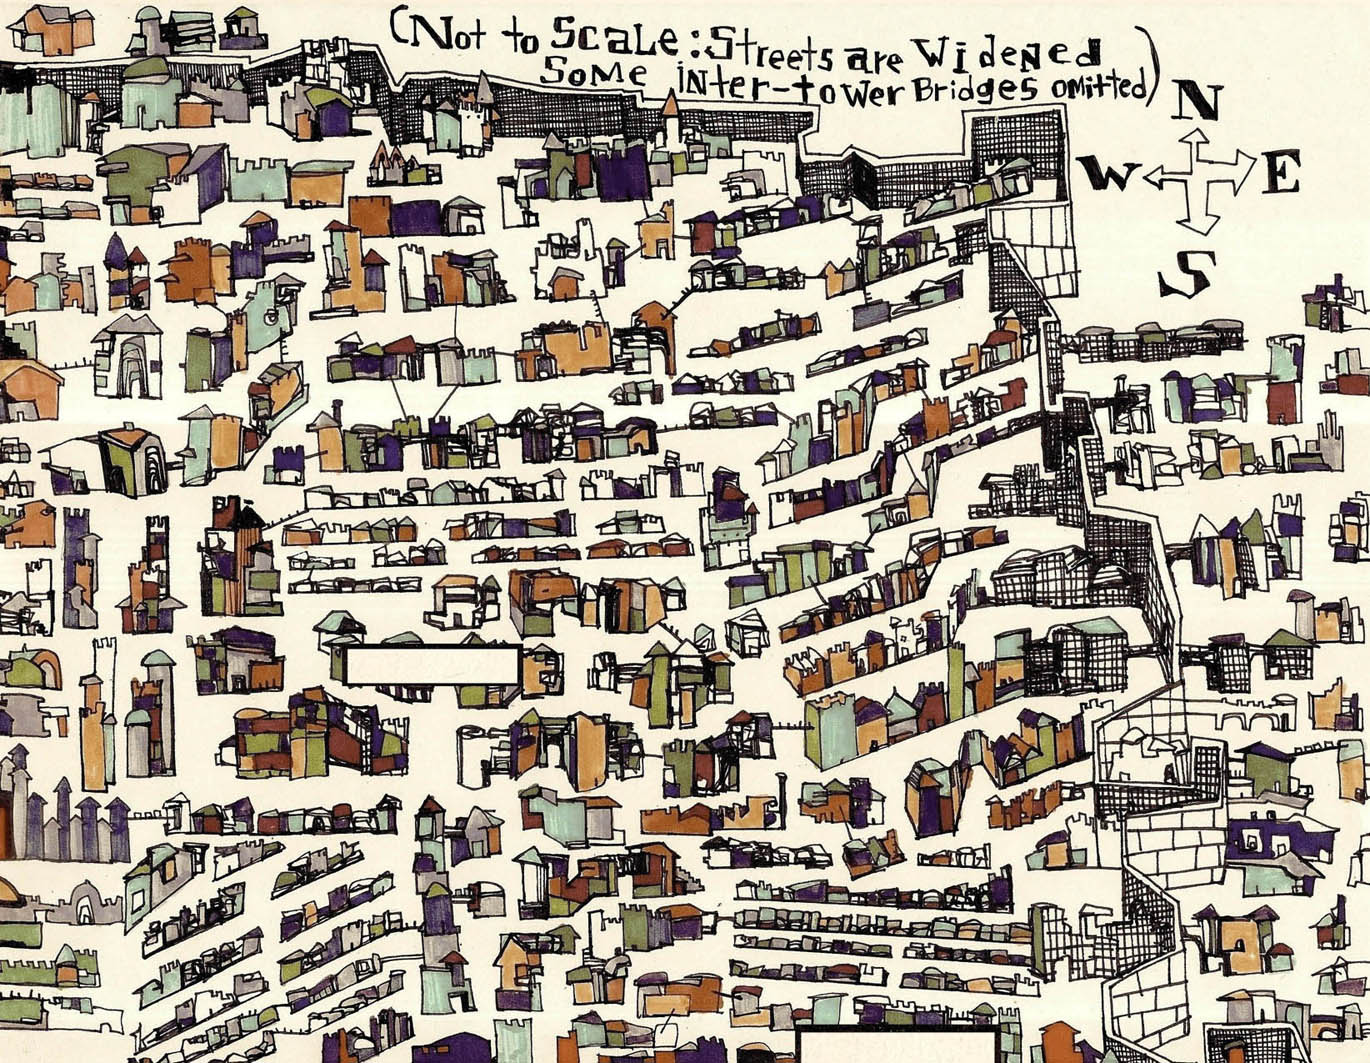 (Not to Scale: Streets are Widened
Some inter-tower Bridges omitted)
N
W E
S